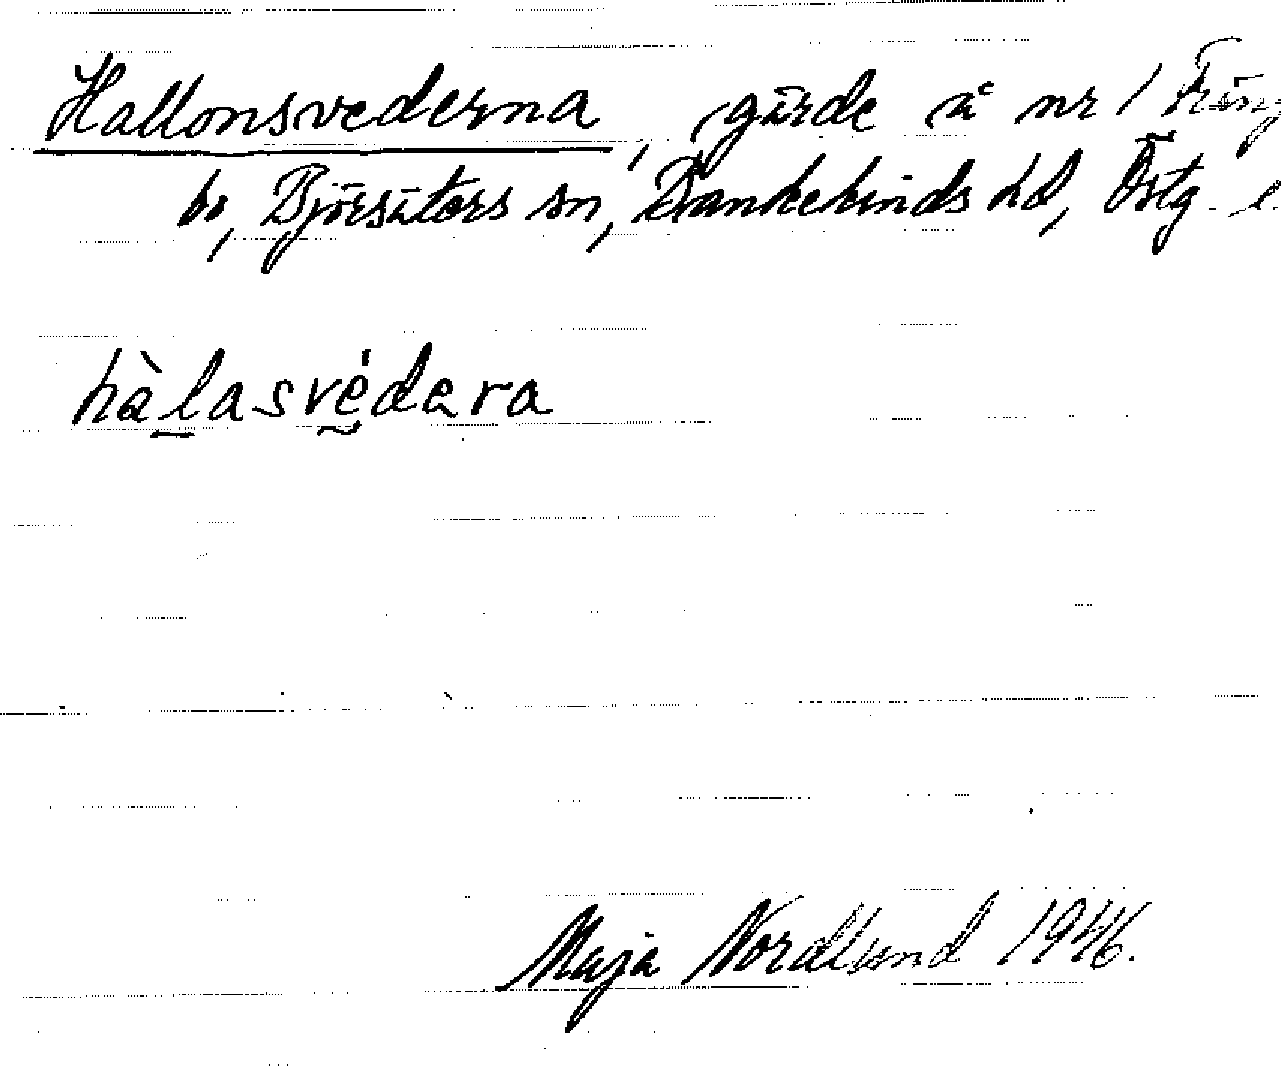 Hallonsvederna, gärde å nr 1 Fräng
bo, Björsäters sn, Bankekinds hd, Östg. l.
hàlasvédara
Maja Nordlund 1946.